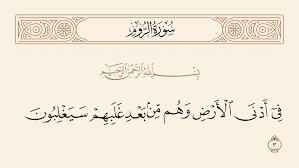 سُورَةُ الرُّومِ
بِسْمِ اللَّهِ الرَّحْمَٰنِ الرَّحِيمِ
فِىٓ أَدْنَى الْأَرْضِ وَهُم مِّنۢ بَعْدِ غَلَبِهِمْ سَيَغْلِبُونَ
٣